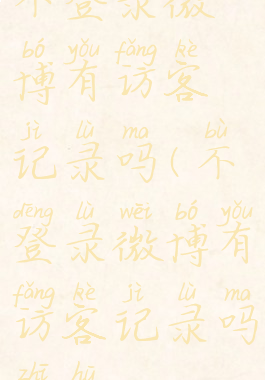 不登录微
bó yǒu fǎng kè
博有访客
jì lù ma bù
记录吗(不
dēng lù wēi bó yǒu
登录微博有
fǎng kè jì lù ma
访客记录吗
zhī hū